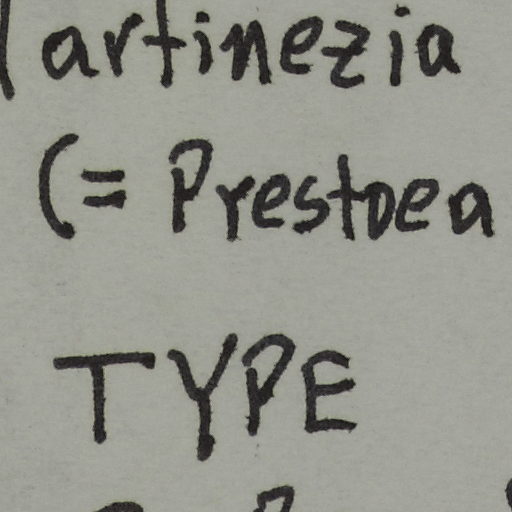 artinezia
(= Prestoea
TYPE